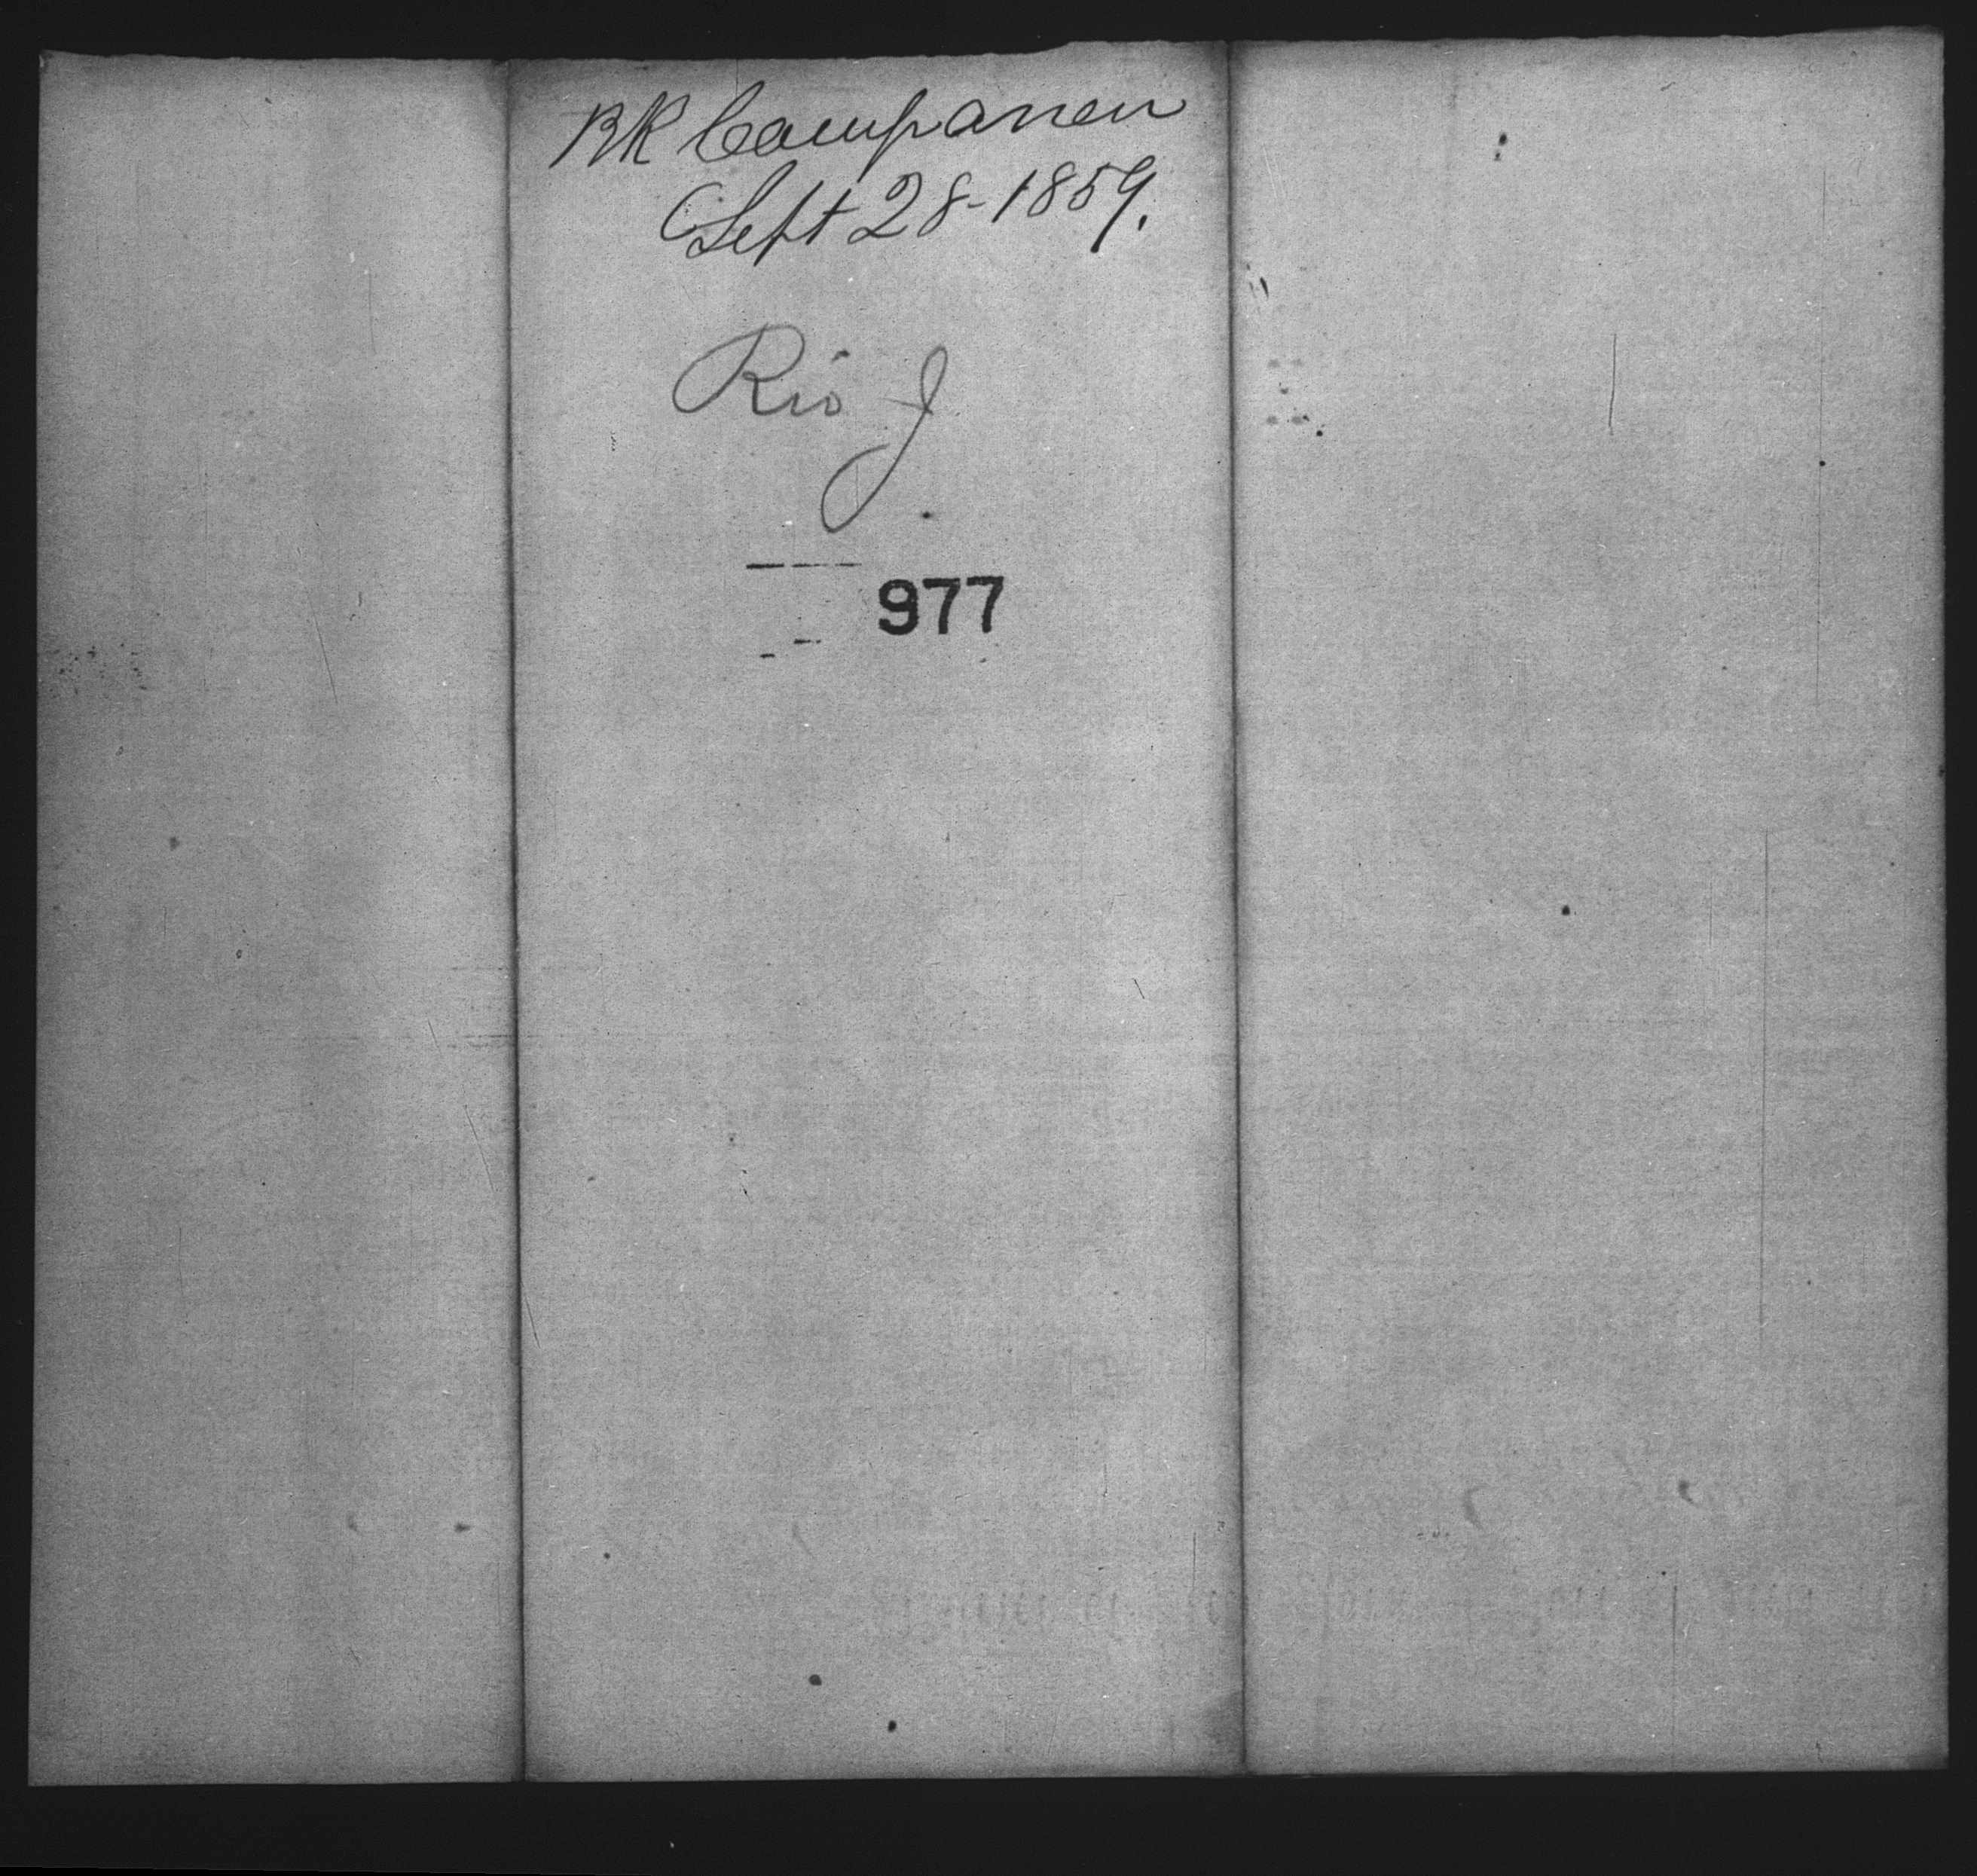 BK Campanen
Sept 28-1859.
Rio J
977